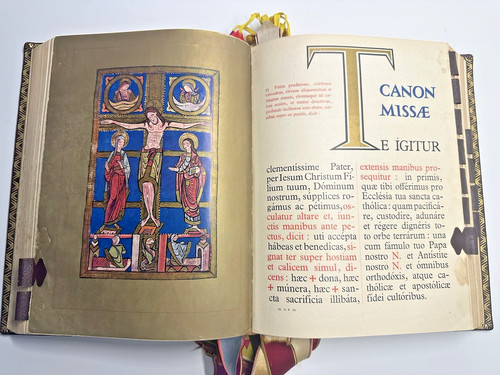 super eo positis, dicit :
T
CANON
MISSÆ
E ÍGITUR
clementíssime Pater,
per Iesum Christum Fí-
lium tuum, Dóminum
nostrum, súpplices ro-
gámus ac pétimus, os-
culatur altare et, iun-
ctis manibus ante pe-
ctus, dicit : uti accépta
hábeas et benedícas, si-
gnat ter super hostiam
et calicem simul, di-
cens : hæc + dona, hæc
+ múnera, hæc + san-
cta sacrifícia illibáta,
extensis manibus pro-
sequitur : in primis,
quæ tibi offérimus pro
Ecclésia tua sancta ca-
thólica : quam pacificá-
re, custodíre, adunáre
et régere dignéris to-
to orbe terrárum : una
cum fámulo tuo Papa
nostro N. et Antístite
nostro N. et ómnibus
orthodóxis, atque ca-
thólicæ et apostólicæ
fídei cultóribus.